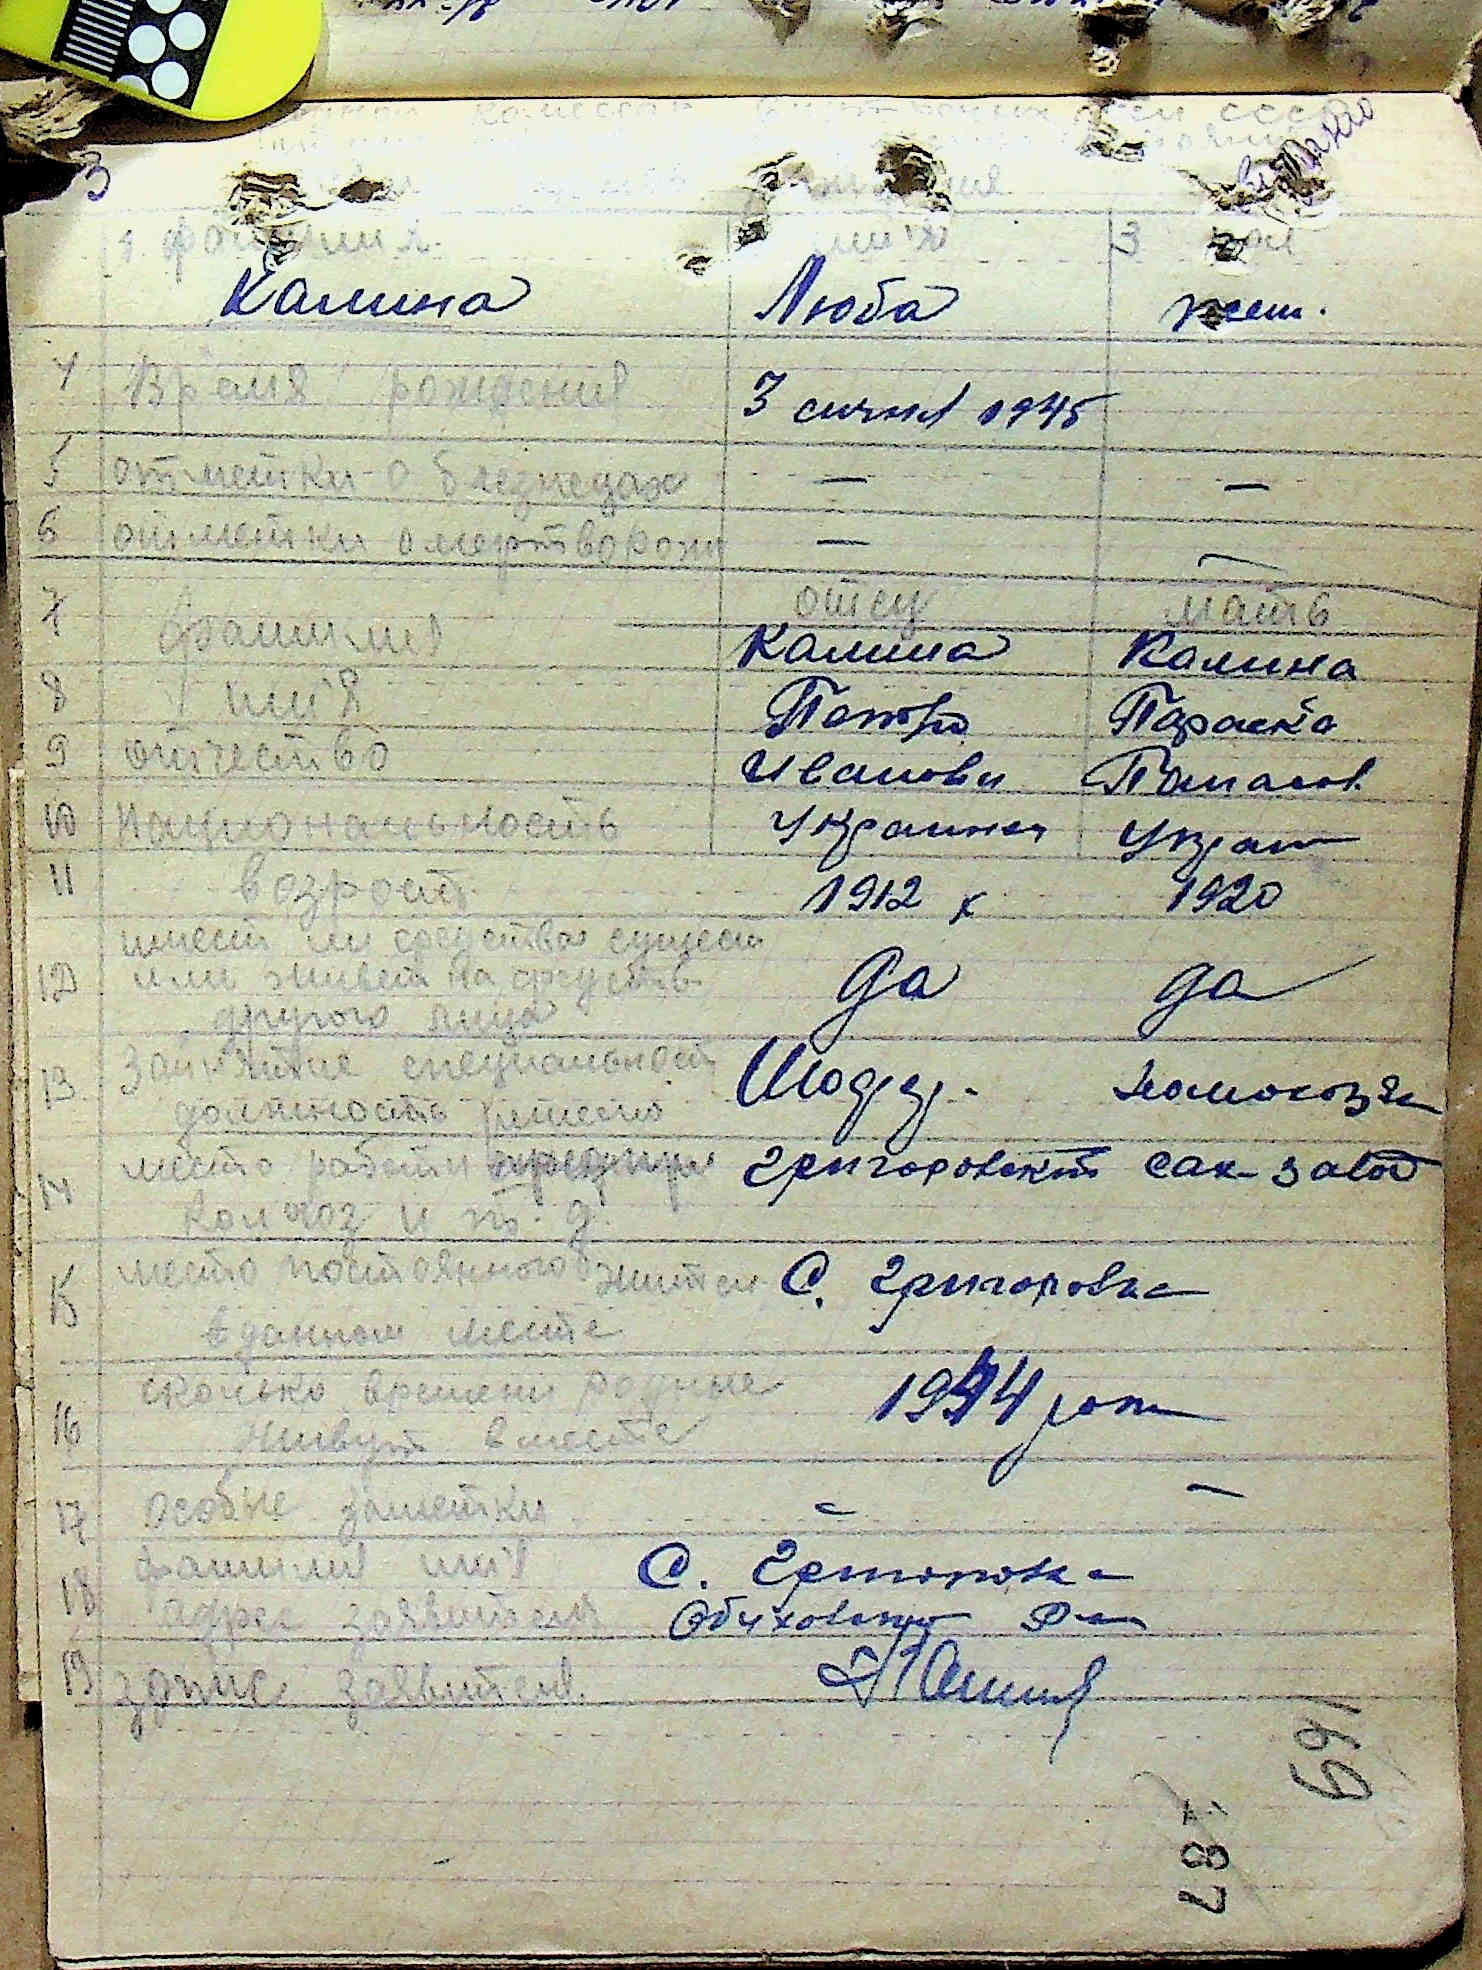 3
СССР
1. фамилия имя 3 пол
Калина Люба жен.
4 Время рождения 3 сичня 1945
5 отметки о близнецах — —
6 отметки о мертворож — —
отец мать
7 фамилия Калина Калина
8 имя Петро Параска
9 отчество Иванови Панасов.
10 национальность Украинец Украин
11 возраст 1912 х 1920
имеет ли средства сущест
12 или живет на средств да да
другого лица
13 занятие специальност домохозяй
должность
14 место работи Григоровский сах-завод
колхоз и т. д.
15 место постоянного жител С. Григоровка
в данном месте
16 сколько времени родные 1944 рок
живут вместе
17 особые заметки - -
18 фамилия имя С. Григоровка
адрес заявителя Обуховского р-на
19 заявителя
169
87